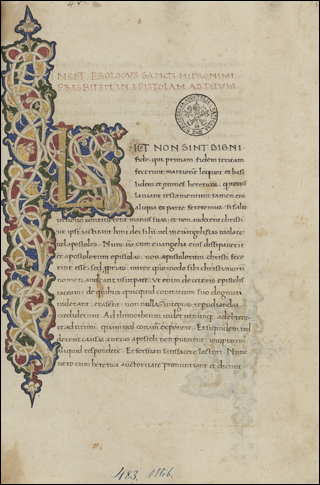 INCIPIT PROLOGVS SANCTI HIERONIMI
PRESBITERI IN EPISTOLAM AD TITVM
LICET NON SINT DIGNI
fide qui primam fidem irritam
fecerunt; marcionē loquor et basi
lidem et omnes hereticos; qui uetus
laniant testamentum; tamen eos
aliqua ex parte ferremus: si saltē
in nouo continerent manus suas: et non auderent christi
ut ipsi iactitant boni dei filii; uel euangelistas uiolare
uel apostolos. Nunc
euangelia eius dissipauerūt
et apostolorum epistolas: non apostolorum christi fece
runt
quomodo sibi christianorū
nomen audeant usurpare. Vt enim de ceteris epistolis
taceam: de quibus quicquid contrarium suo dogmati
uiderant: eraserunt: non nullas integras repudiandas
crediderunt. Ad Thimotheum uidelicet utramque: ad hebreos
et ad titum: quam nos conamur exponere. Et siquidem red
derent causas: cur eas apostoli non putarent; temptaremus
aliquid respondere. Et forsitan satisfacere lectori. Nunc
uero cum heretica auctoritate pronuntiant et dicunt
483.